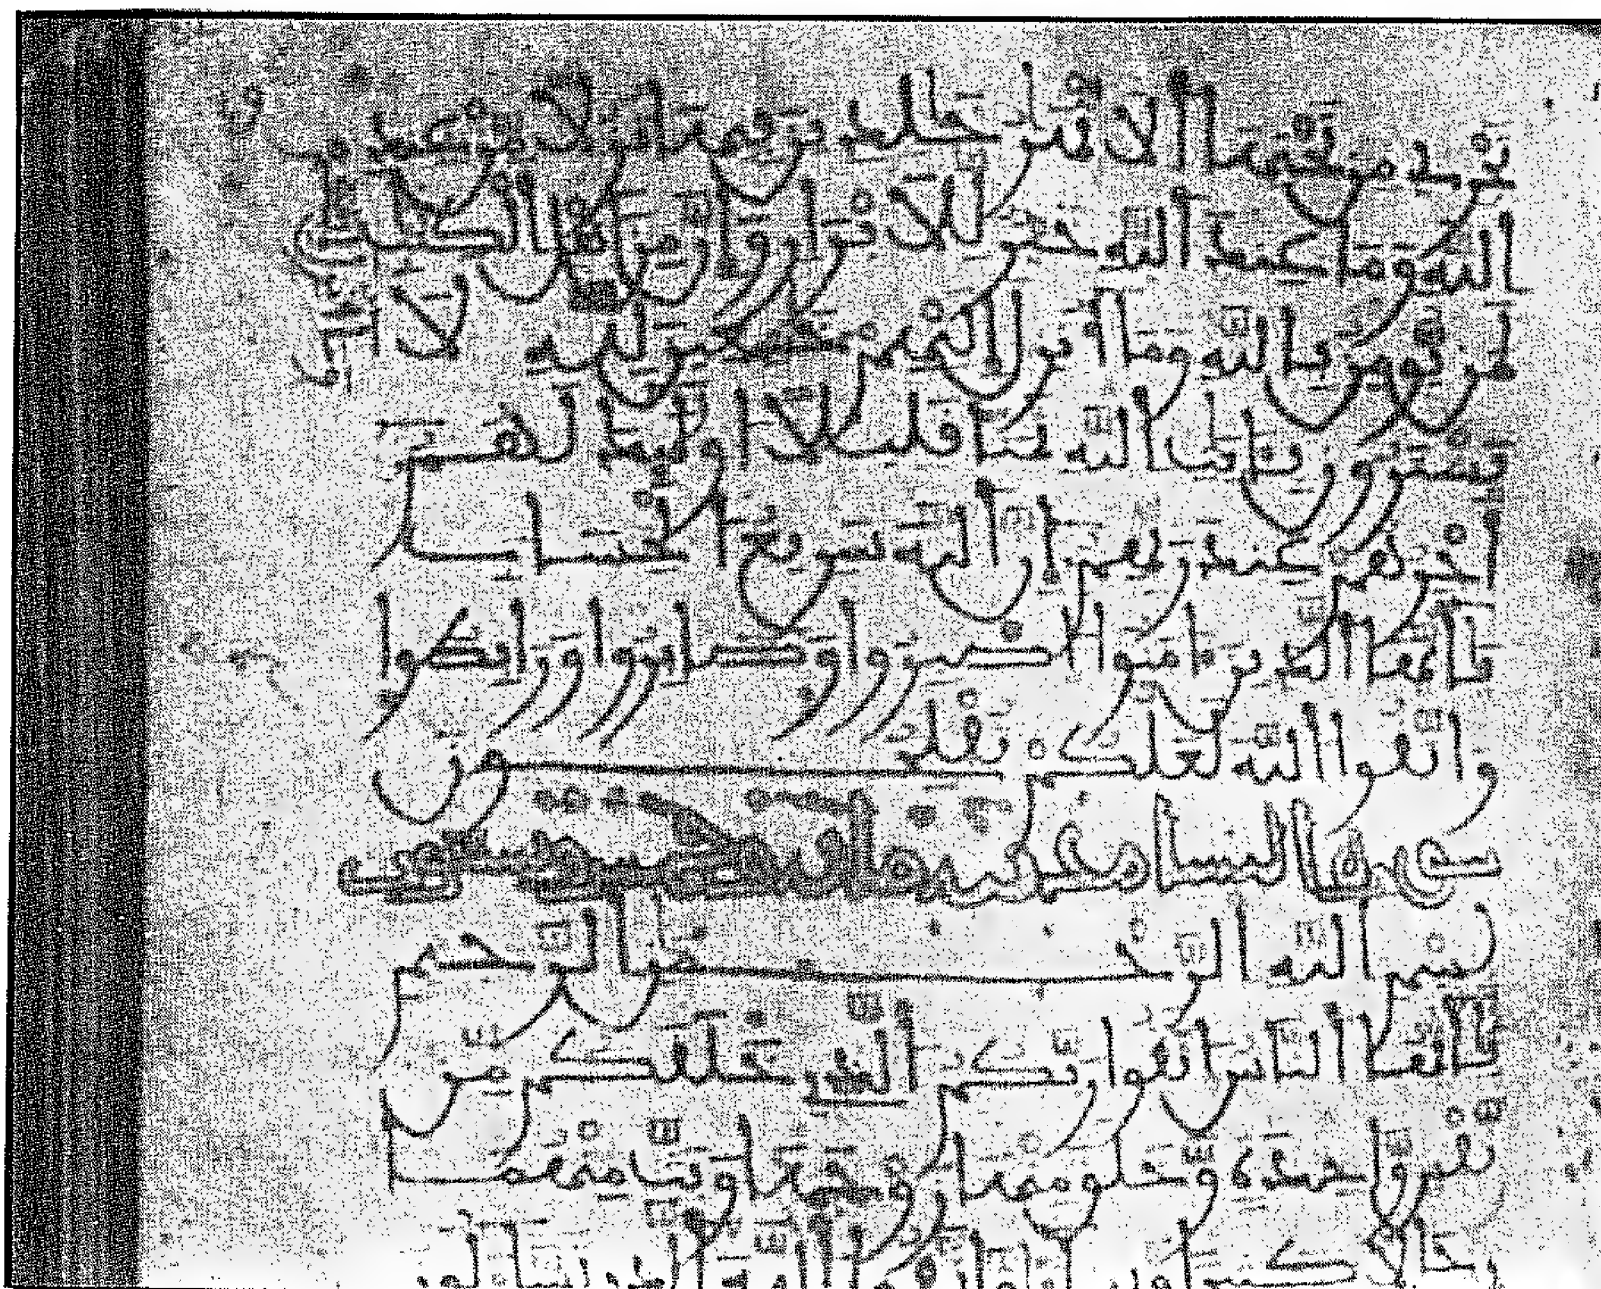 تجري من تحتها الانهر خلدين فيها نزلا من عند
الله وما عند الله خير للابرار وان من اهل الكتب
لمن يومن بالله وما انزل اليكم وما انزل اليهم خشعين لله لا
يشترون بايت الله ثمنا قليلا اوليك لهم
اجرهم عند ربهم ان الله سريع الحساب
يايها الذين ءامنوا اصبروا وصابروا ورابطوا
واتقوا الله لعلكم تفلحون
سورة النسا
بسم الله الرحمن الرحيم
يايها الناس اتقوا ربكم الذي خلقكم من
نفس واحدة وخلق منها زوجها وبث منهما
رجالا كثيرا ونسا واتقوا الله الذي تسالون